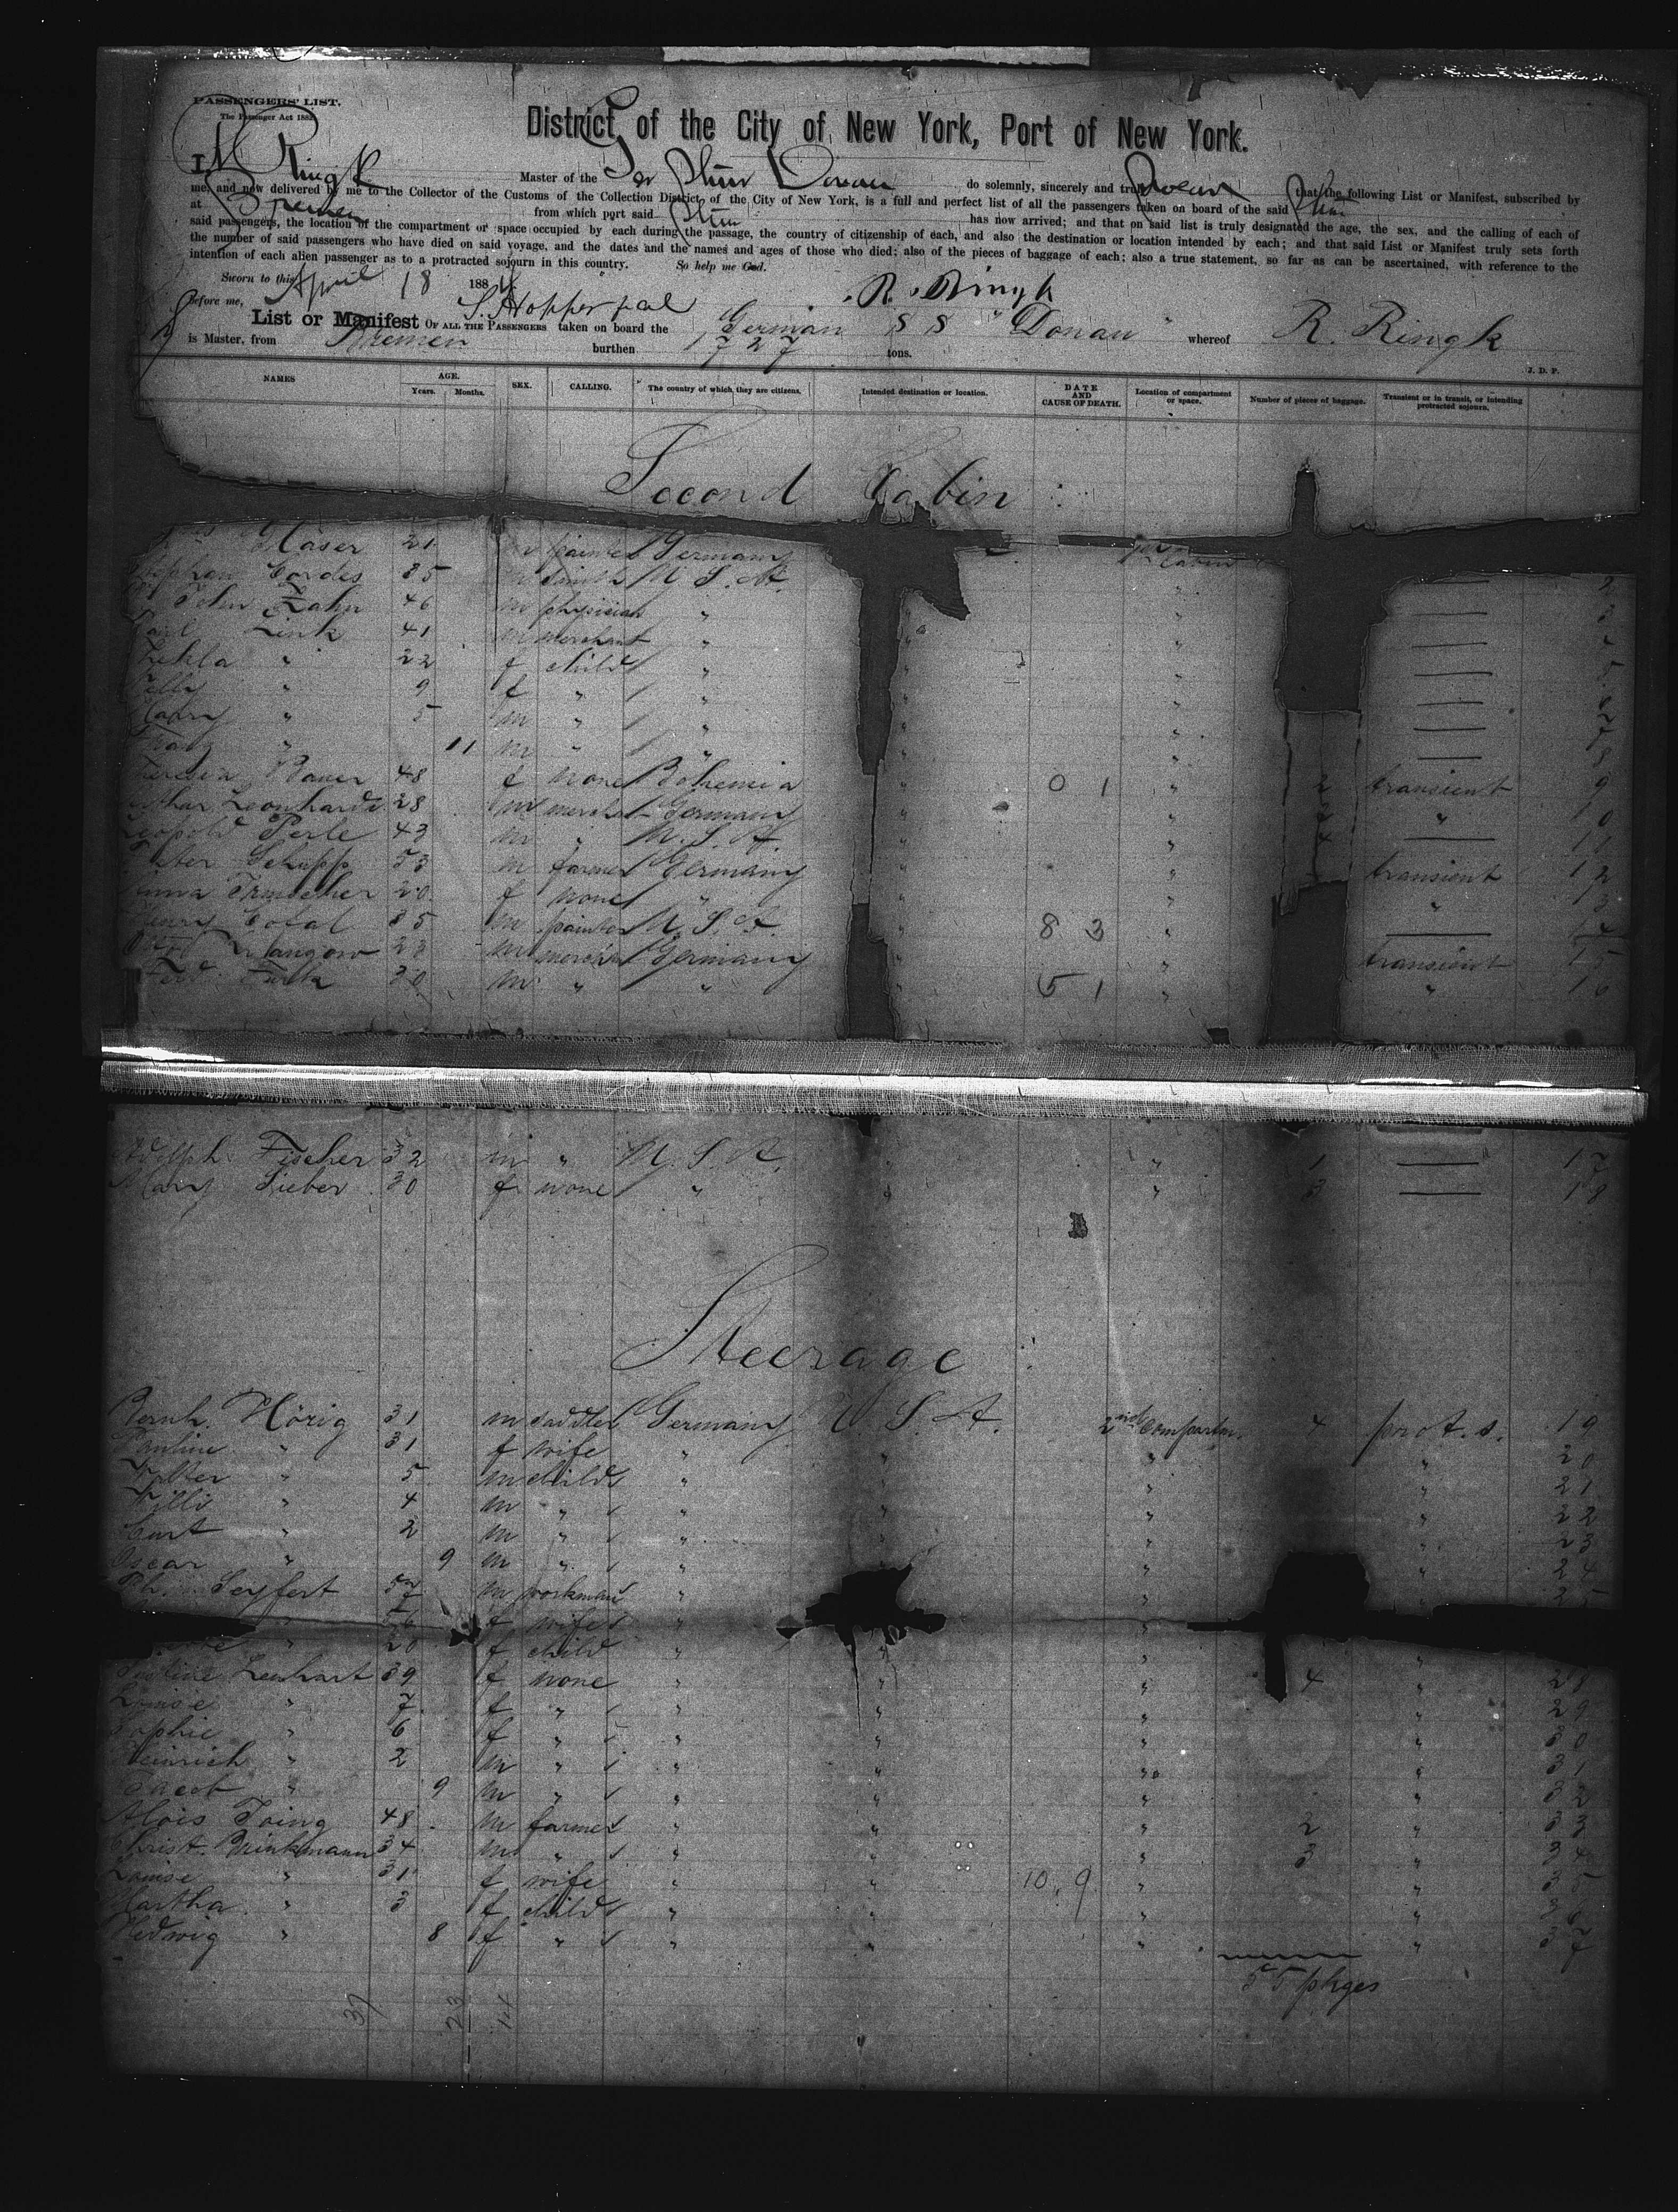 PASSENGERS' LIST.
The Passenger Act 1882
District of the City of New York, Port of New York.
I, R Ringk Master of the Ger Stmr Donau do solemnly, sincerely and truly swear that the following List or Manifest, subscribed by
me, and now delivered by me to the Collector of the Customs of the Collection District of the City of New York, is a full and perfect list of all the passengers taken on board of the said Stmr
at Bremen from which port said Stmr has now arrived; and that on said list is truly designated the age, the sex, and the calling of each of
said passengers, the location of the compartment or space occupied by each during the passage, the country of citizenship of each, and also the destination or location intended by each; and that said List or Manifest truly sets forth
the number of said passengers who have died on said voyage, and the dates and the names and ages of those who died; also of the pieces of baggage of each; also a true statement, so far as can be ascertained, with reference to the
intention of each alien passenger as to a protracted sojourn in this country. So help me God.
Sworn to this April 18 1884 R. Ringk
Before me,
List or Manifest OF ALL THE PASSENGERS taken on board the German S S " Donau " whereof R. Ringk
is Master, from Bremen burthen 1727 tons.
J. D. P.
NAMES AGE. Years. Months. SEX. CALLING. The country of which they are citizens. Intended destination or location. DATE AND CAUSE OF DEATH. Location of compartment or space. Number of pieces of baggage. Transient or in transit, or intending protracted sojourn.
Second Cabin :
Glaser 21 painter Germany Cabin
Cordes 35 m U. S. A. " — 2
John Zahn 46 m physician " " " — 3
Link 41 m merchant " " " — 4
Thekla " 22 f child " " " — 5
" 9 f " " " " — 6
Harry " 5 m " " " " — 7
" 11 m " " " " — 8
Bauer 48 f none Bohemia " 0 1 " 2 transient 9
Leonhardt 28 m merchant Germany " " " 10
Leopold Perle 43 m " U. S. A. " " — 11
Schupp 53 m farmer Germany " " transient 12
20 f none " " " " 13
Henry Cotal 35 m painter U. S. A. " 8 3 " — 14
23 m merchant Germany " " transient 15
Funk 30 m " " " 5 1 " " 16
Fischer 32 m " U. S. A. " 1 — 17
Mary Sieber 30 f none " " " 3 — 18
Steerage :
Bernh. Hörig 31 m saddler Germany U. S. A. 2nd Compartm. 4 prot. s. 19
Pauline " 31 f wife " " " " 20
Walter " 5 m child " " " " 21
Willi " 4 m " " " " " 22
Curt " 2 m " " " " " 23
Oscar " 9 m " " " " 24
Seyfert 57 m workman " " 25
" 56 f wife "
" 20 f child " " " "
Lenhart 39 f none " " " 4 " 28
Louise " 7 f " " " " " 29
Sophie " 6 f " " " " " 30
Heinrich " 2 m " " " " " 31
Jacob " 9 m " " " " " 32
Alois Toing 48 m farmer " " " 2 " 33
Christ. Brinkmann 34 m " " " " 3 " 34
Louise " 31 f wife " " 10.9 " " 35
Martha " 3 f child " " " " 36
Hedwig " 8 f " " " " " 37
55 pkges
37 23 14